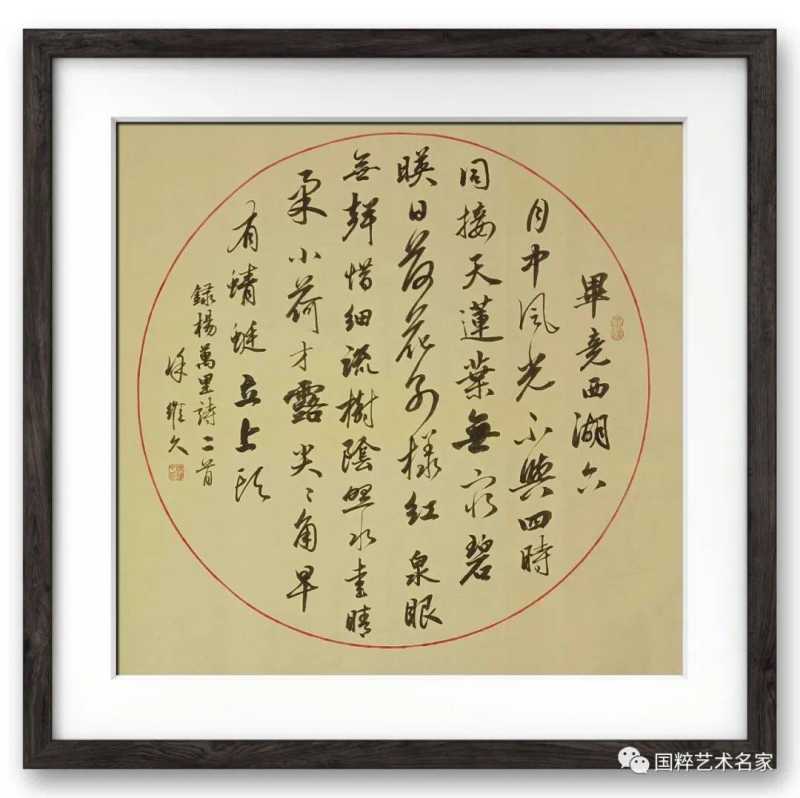 畢竟西湖六
月中風光不與四時
同接天蓮葉無窮碧
暎日荷花别樣紅泉眼
無聲惜細流樹陰照水愛晴
柔小荷才露尖〻角早
有蜻蜓立上頭
録楊萬里詩二首
徐維久
国粹艺术名家